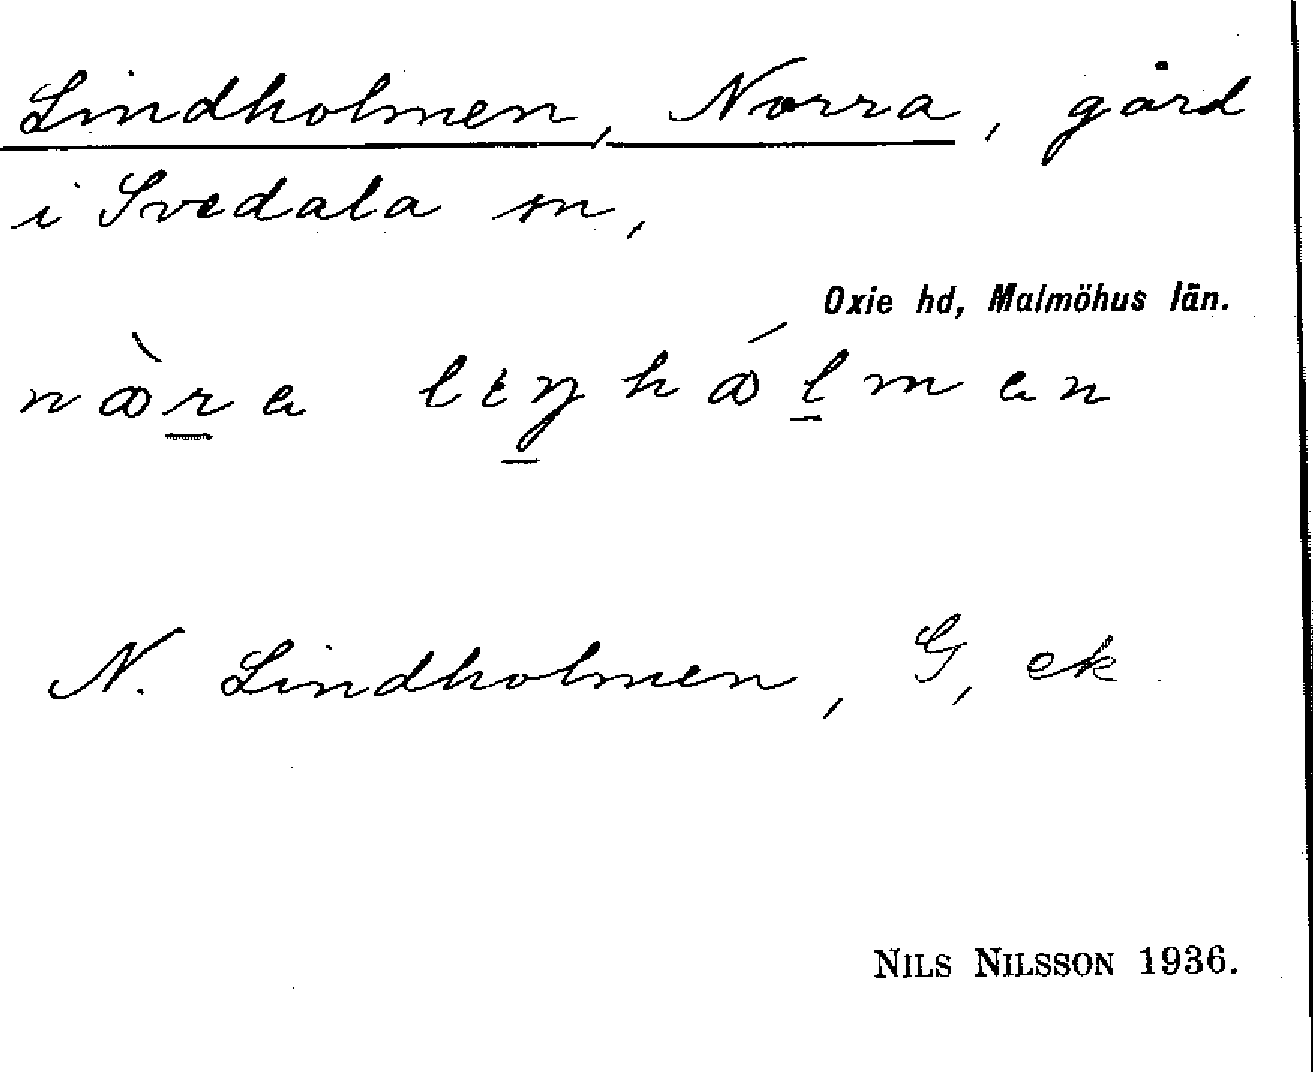 Lindholmen, Norra, gård
i Svedala sn,
Oxie hd, Malmöhus län.
N. Lindholmen, G, ek
NILS NILSSON 1936.